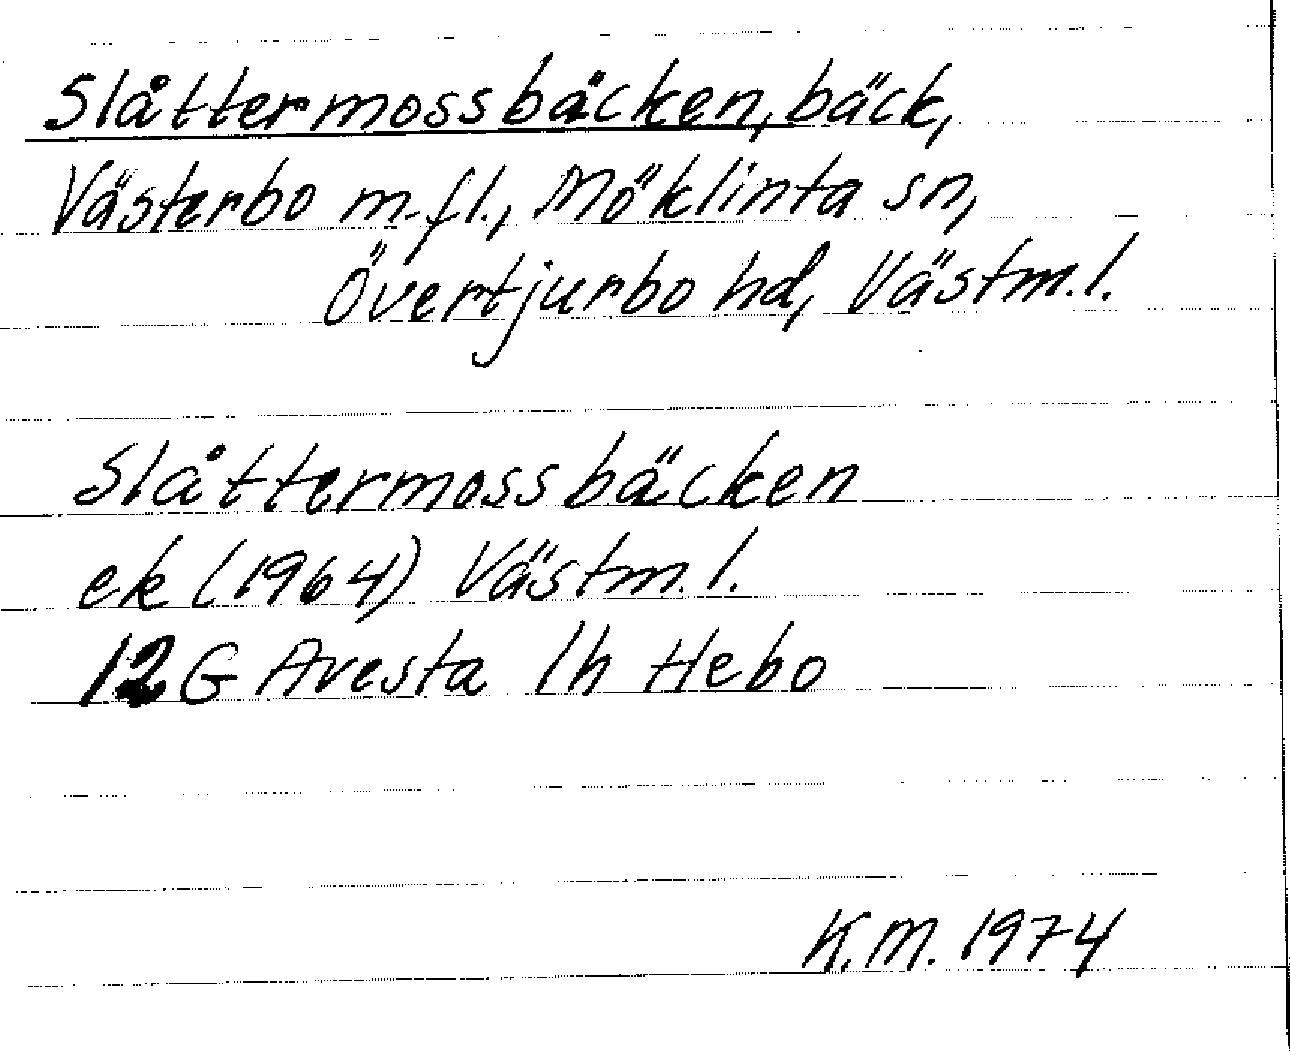 Slåttermossbäcken, bäck,
Västerbo m.fl., Möklinta sn,
Övertjurbo hd, Västm.l.
Slåttermossbäcken
ek (1964) Västm.l.
12G Avesta 1h Hebo
K.M. 1974